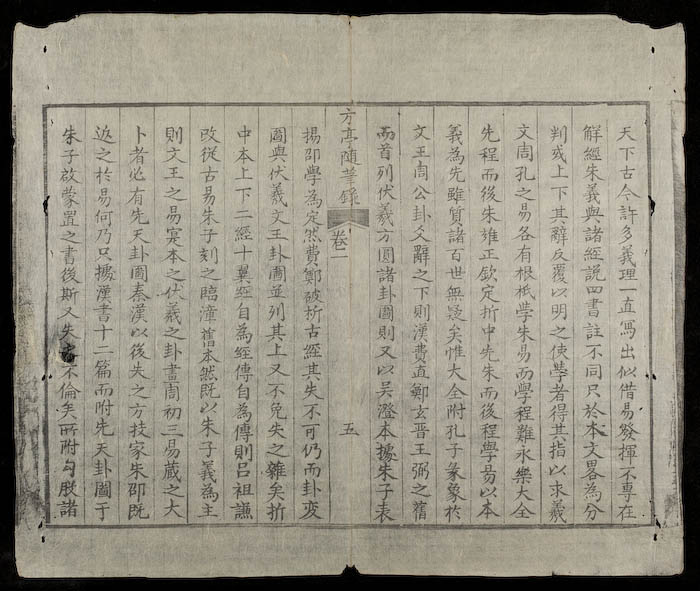 天下古今許多義理一直寫出似借易發揮不專在
解經朱義與諸經說四書註不同只於本文畧為分
判或上下其辭反覆以明之使學者得其指以求羲
文周孔之易各有根柢學朱易而學程難永樂大全
先程而後朱雍正欽定折中先朱而後程學易以本
義為先雖質諸百世無疑矣惟大全附孔子彖象於
文王周公卦爻辭之下則漢費直鄭玄晋王弼之舊
而首列伏羲方圓諸卦圖則又以吴澄本據朱子表
方亭隨筆錄
卷一
五
揚邵學為定然費鄭破析古經其失不可仍而卦変
圖與伏羲文王卦圖並列其上又不免失之雜矣折
中本上下二經十翼經自為經傳自為傳則吕祖謙
改從古易朱子刻之臨潼舊本然既以朱子義為主
則文王之易寔本之伏羲之卦畫周初三易蔵之大
卜者必有先天卦圖秦漢以後失之方技家朱邵既
返之於易何乃只據漢書十二篇而附先天卦圖于
朱子啟蒙置之書後斯又失不倫矣所附勾股諸